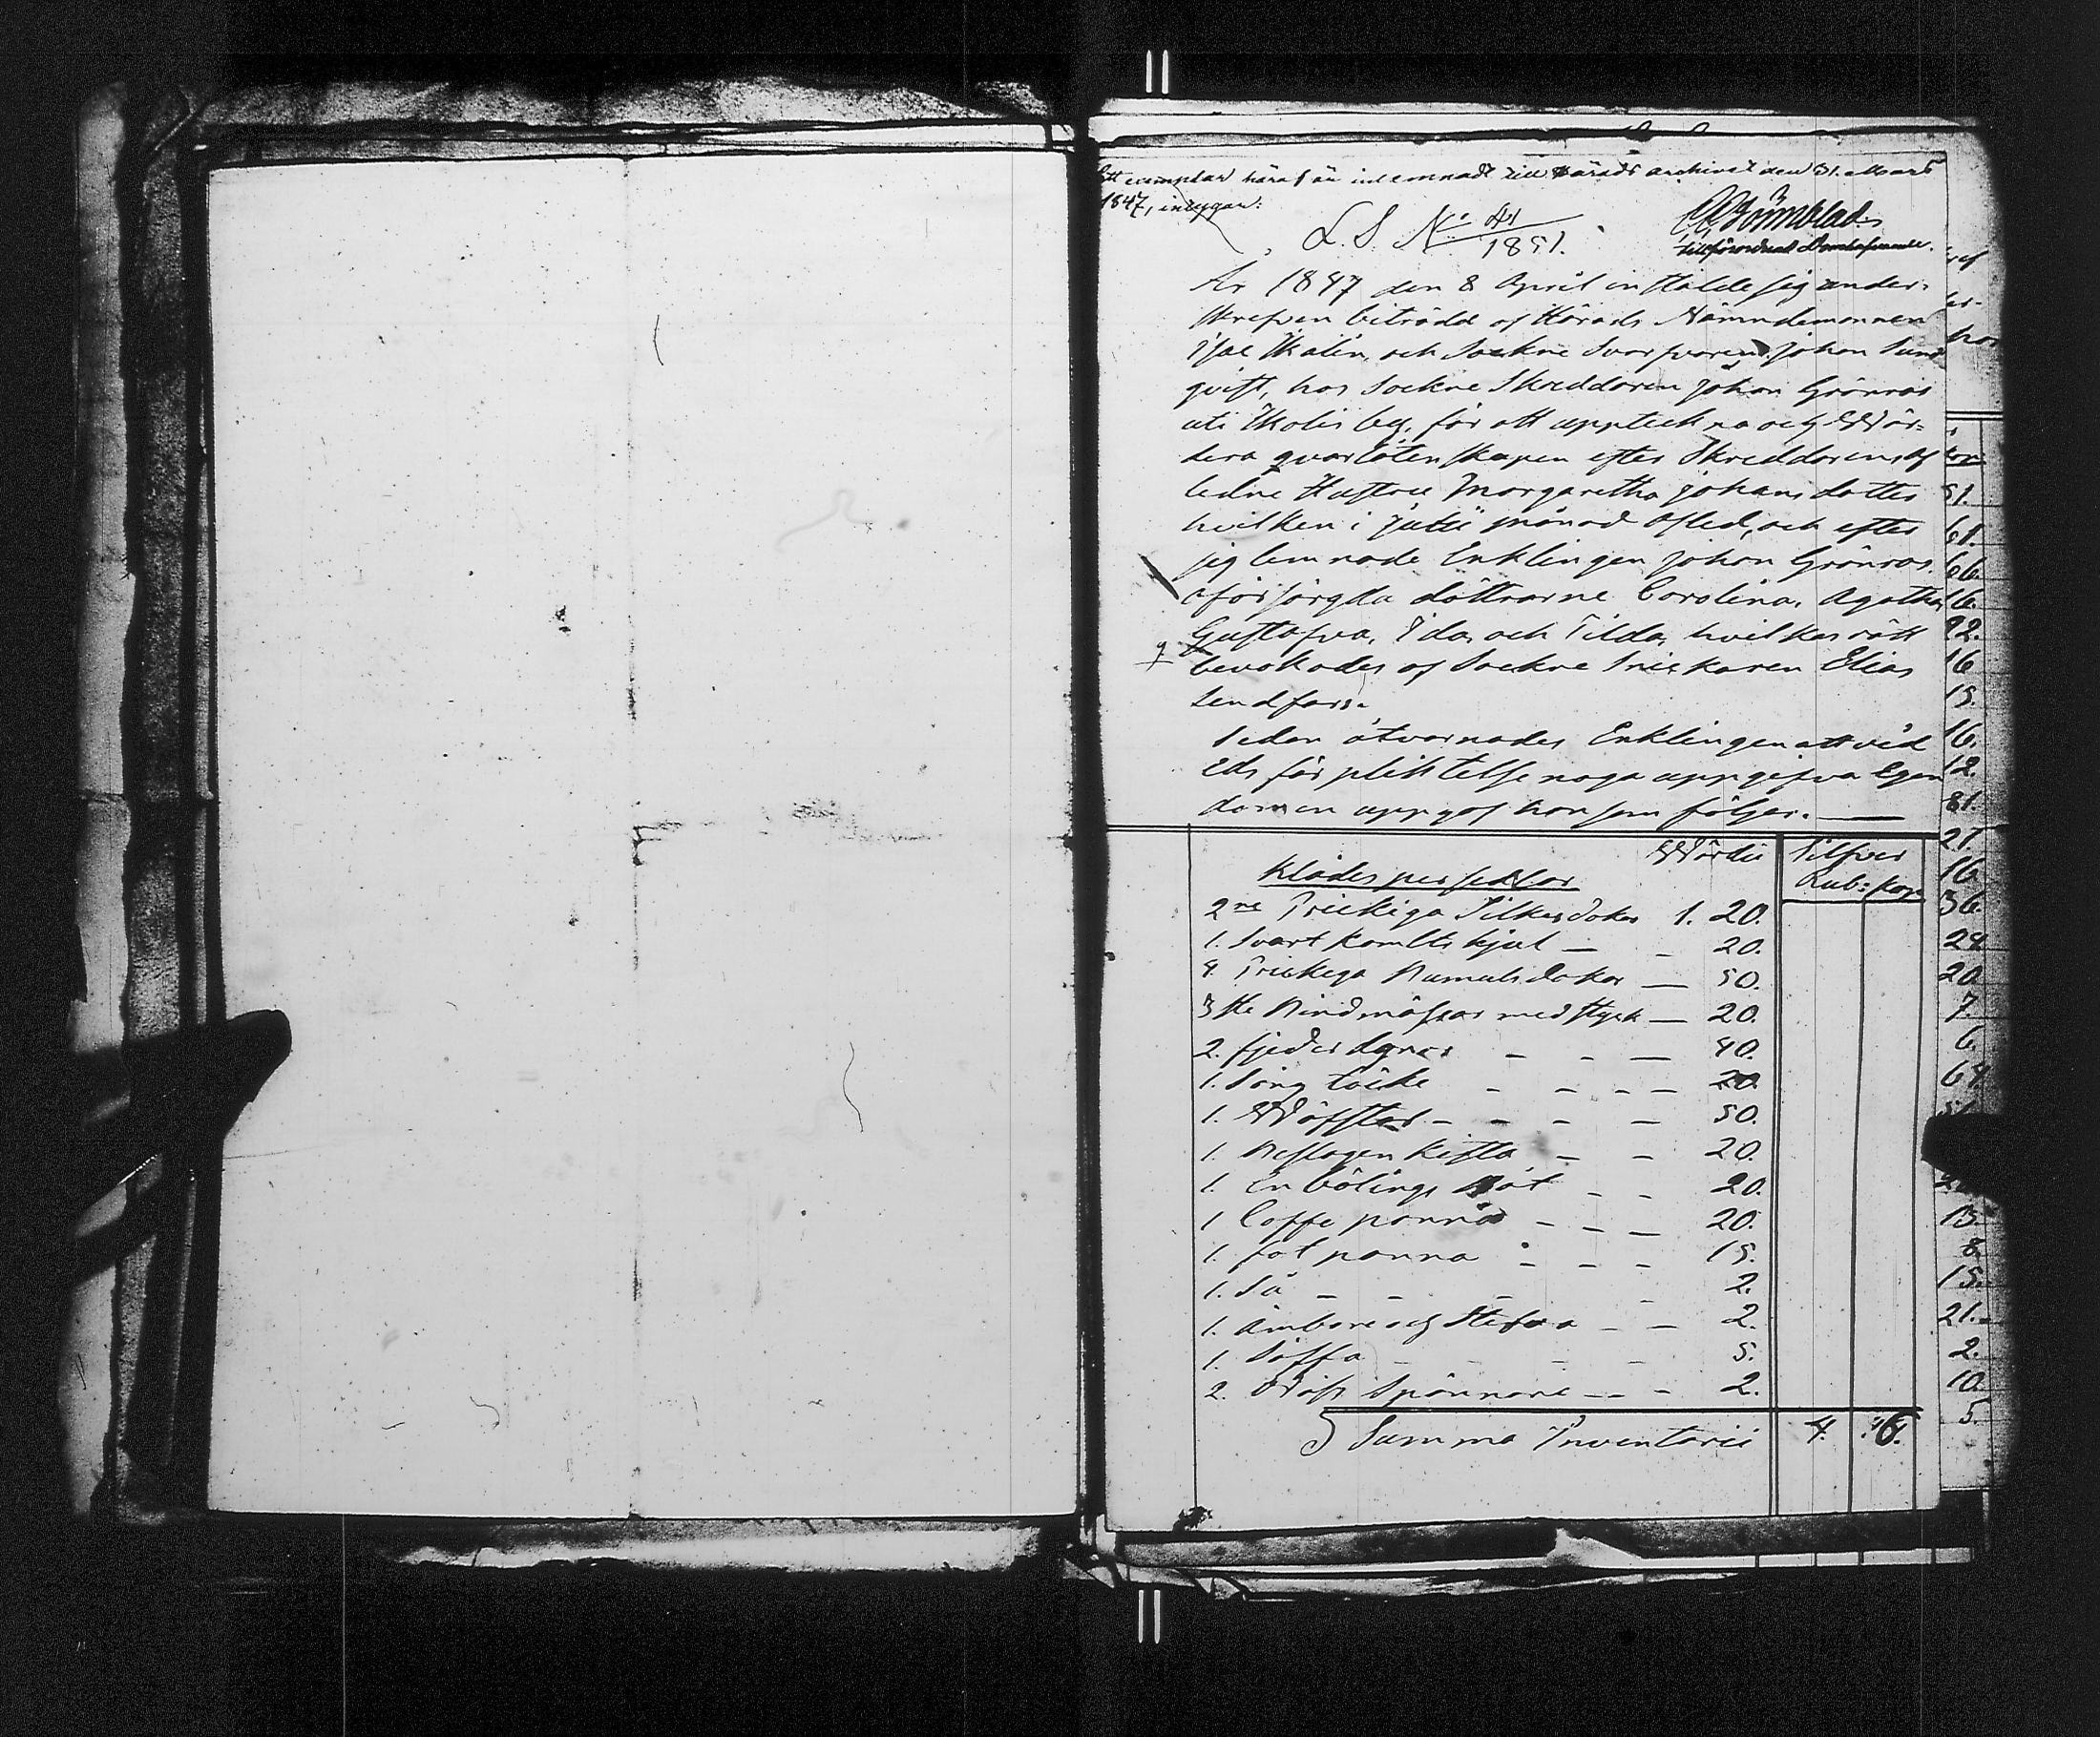 Ett exemplar häraf är inlemnadt till Härads archivet den 31. Mars
1847, intygar:
L. S. N:o 41
1851.
Tillförordnad Domhafvande.
År 1847 den 8 April instälde sig under-
skrefven biträdd af Härads Nämndemannen
Isac Skalin, och Sockne Svarfvaren Johan Sund
qvist, hos Sockne Skreddaren Johan Grönros
uti by, för att uppteckna och Wär-
dera qvarlåtenskapen efter Skreddarens af
ledne Hustru Margaretha Johansdotter
hvilken i Julii månad afled, och efter
sig lemnade Enklingen Johan Grönros
oförsörgda döttrarne Carolina, Agatha
Gustafva, Ida, och Tilda, hvilkas rätt
bevakades af Sockne Snickaren Elias
Lendfors.
Sedan åtvarnades Enklingen att vid
Eds förpliktelse noga uppgifva Egen
domen uppgaf han som följer.
Wärdie Silfver
Klädes persedlar Rub: kop
2ne Trickiga Silkesdokar 1. 20.
1. Svart kamlts kjol — - 20.
4. Trickiga Bumulsdokar — 50.
3tte Bindmössor med styck — 20.
2. fjeder dynor - - — 40.
1. Säng täcke - - - — 20.
1. Wäfstol - - - — 50.
1. Beslagen kista — - 20.
1. En bölings - - 20.
1 Caffe panna - - — 20.
1. fot panna - - - 15.
1. Så - - - - 2.
1. ämbare och Stefva - — 2.
1. Soffa - - - - 5.
2. Wäfs Spännare — - - 2.
Summa Inventarii 4. 6.
51.
61.
66.
16.
22.
16
15.
16.
12.
81.
21
16
36.
24.
20
7
6.
64
13.
8.
15.
21.
2.
10.
5.